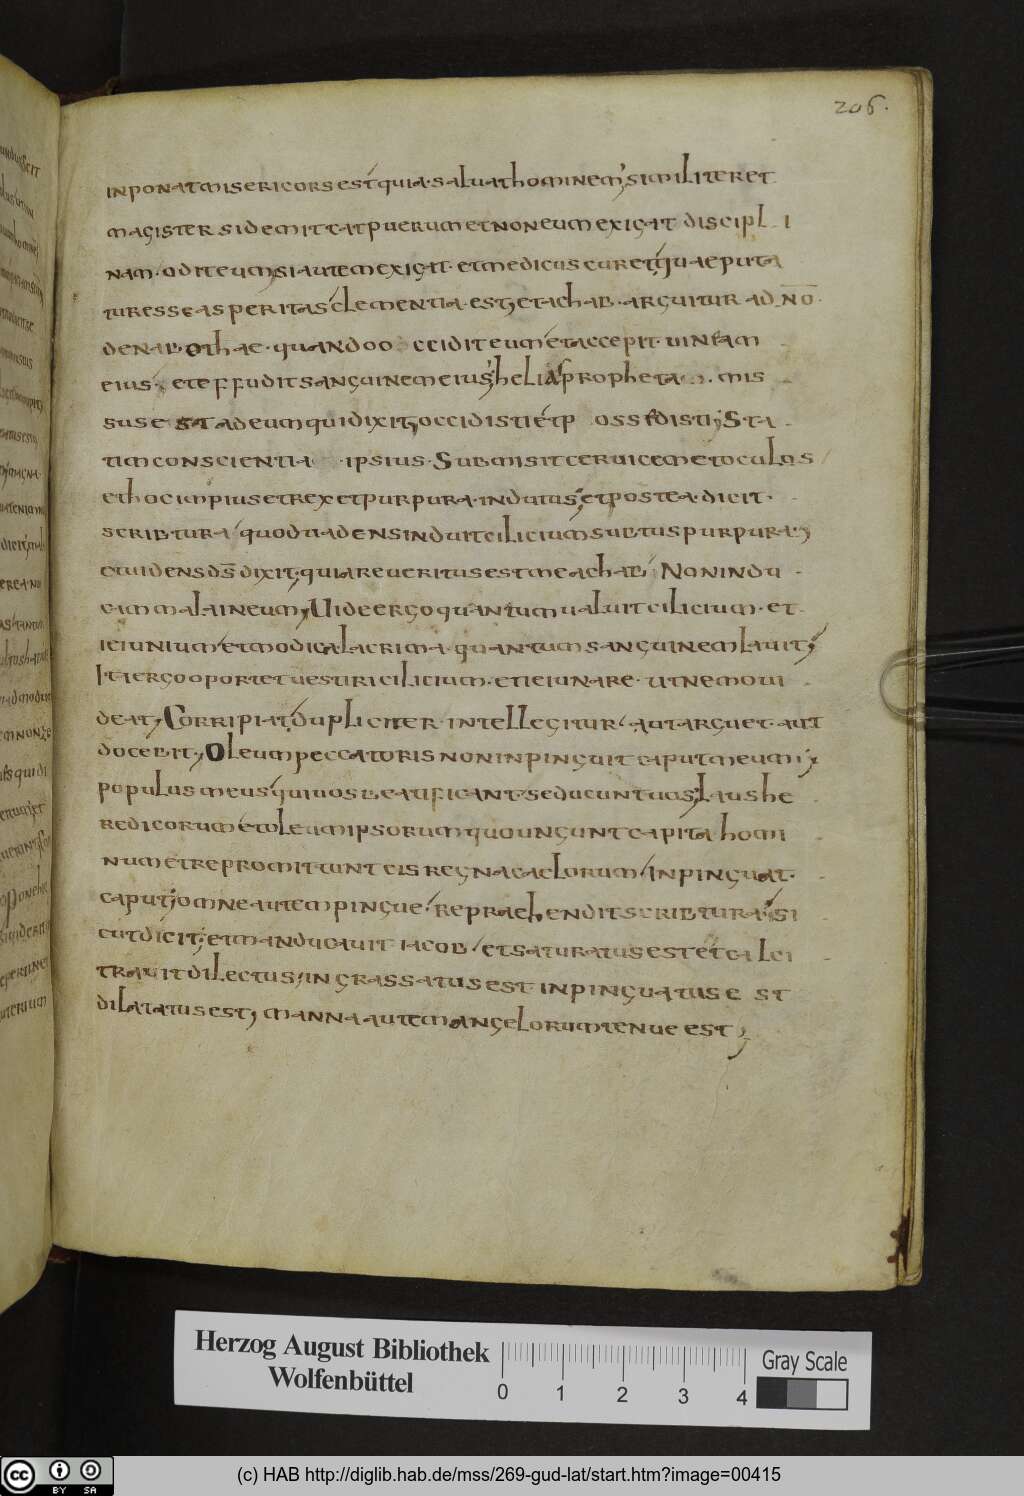 206.
inponat misericors est quia saluat hominem; similiter et
magister si demittat puerum et non eum exigat discipli
nam odit eum, si autem exigit et medicus curet, quae puta
tur esse asperitas clementia est, et achab arguitur ad no
de naboth ae quando occidit eum et accepit uineam
eius, et effudit sanguinem eius, helias propheta mis
sus est ad eum qui dixit, occidisti et possedisti; Sta
tim conscientia ipsius Submisit ceruicem et oculos
et hoc impius et rex et purpura indutus, et postea dicit
scribtura quod uadens induit cilicium subtus purpura;
et uidens ds dixit, quia reueritus est me achab Non indu
cam mala in eum; Uide ergo quantum ualuit cilicium et
ieiunium et modica lacrima quantum sanguinem lauit;
Ita ergo oportet uestiri cilicium et ieiunare ut nemo ui
deat; Corripiat, dupliciter intellegitur, aut arguet aut
docebit; Oleum peccatoris non inpinguit caput meum;
populus meus qui uos beatificant seducunt uos; Laus he
redicorum et oleum ipsorum quo ungunt capita homi
num et repromittunt eis regna caelorum, Inpinguat
caput; omne autem pingue, reprachendit scribtura; si
cut dicit; et manducauit iacob, et saturatus est et calci
trauit dilectus, ingrassatus est inpinguatus est
dilatatus est; manna autem angelorum tenue est;
Herzog August Bibliothek
Wolfenbüttel
0 1 2 3 4
Gray Scale
cc BY SA
(c) HAB http://diglib.hab.de/mss/269-gud-lat/start.htm?image=00415